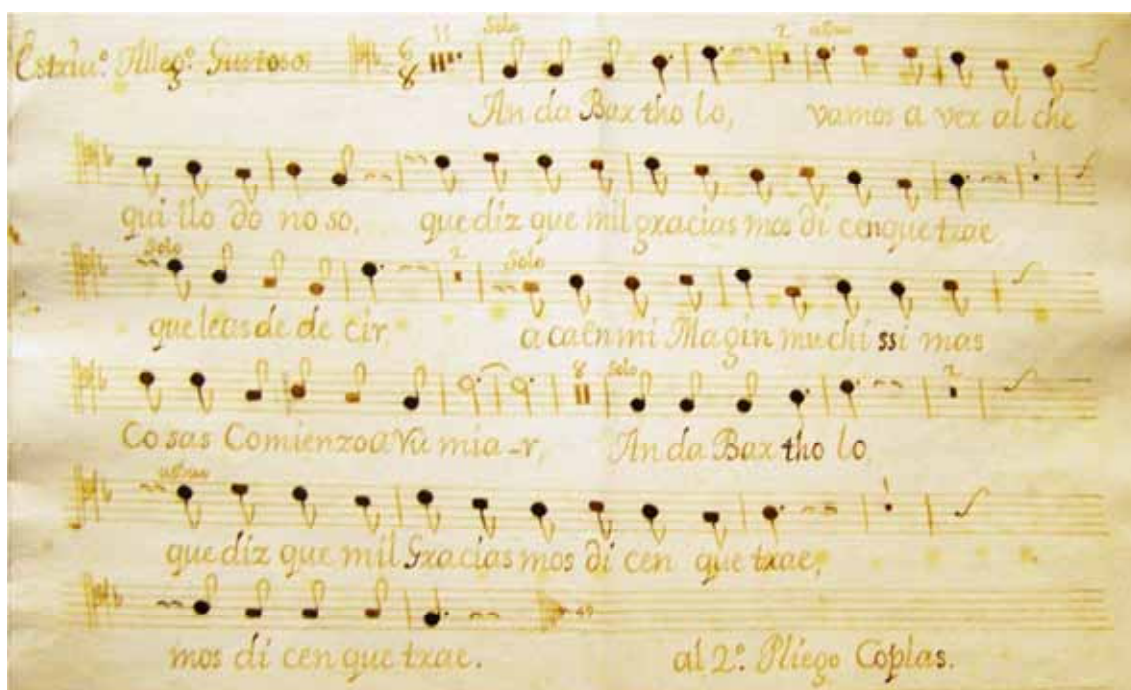 Estriv.º Alleg.º Gustoso.
11 Solo 2
An da Bar tho lo, vamos a ver al che
qui llo do no so, que diz que mil gracias mos di cen que trae
Solo 2 Solo
que leas de de cir, a ca en mi Magin muchi ssi mas
8 Solo 2
Co sas Comienzo a Ru mia-r, An da Bar tho lo,
que diz que mil Gracias mos di cen que trae,
mos di cen que trae. al 2.º Pliego Coplas.